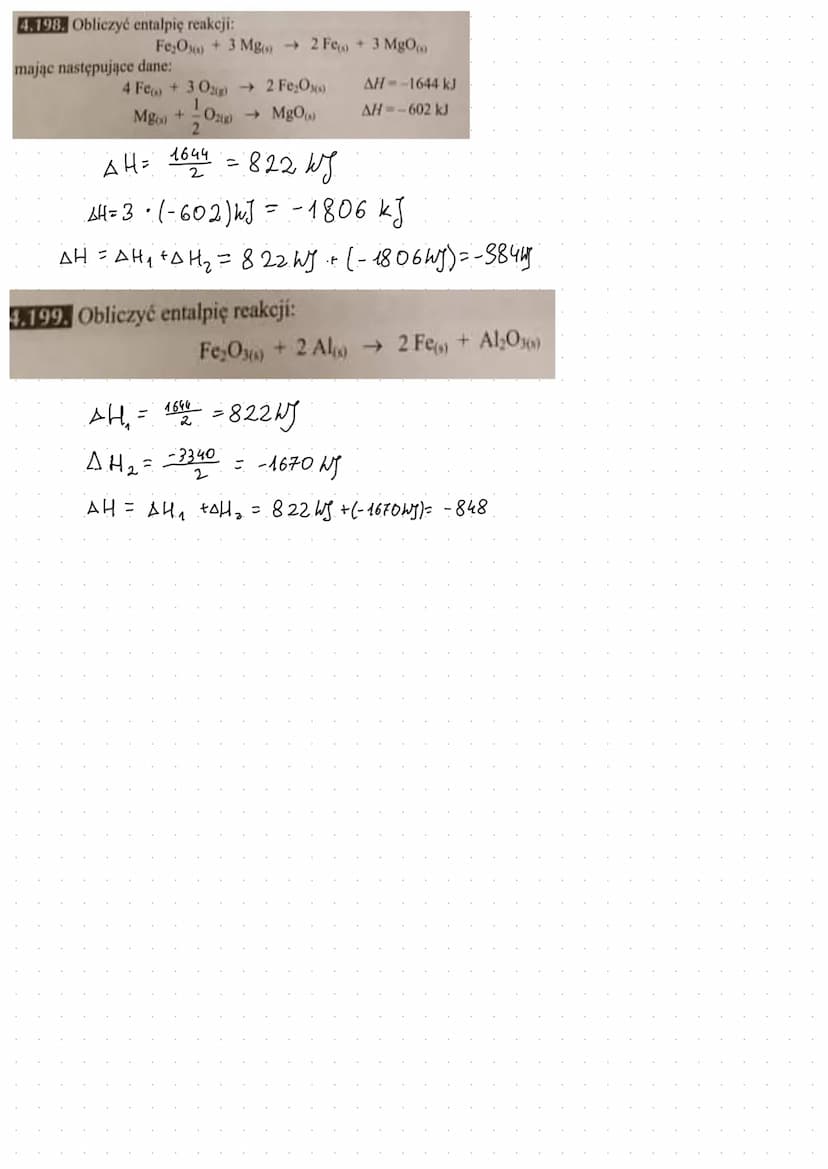 4.198. Obliczyć entalpię reakcji:
Fe₂O₃₍ₛ₎ + 3 Mg₍ₛ₎ → 2 Fe₍ₛ₎ + 3 MgO₍ₛ₎
mając następujące dane:
4 Fe₍ₛ₎ + 3 O₂(g) → 2 Fe₂O₃₍ₛ₎ ΔH = –1644 kJ
Mg₍ₛ₎ + 1/2 O₂(g) → MgO₍ₛ₎ ΔH = – 602 kJ
ΔH = 1644/2 = 822 kJ
ΔH = 3 · (-602)kJ = -1806 kJ
ΔH = ΔH₁ + ΔH₂ = 822 kJ + (-1806 kJ) = -984 kJ
4.199. Obliczyć entalpię reakcji:
Fe₂O₃₍ₛ₎ + 2 Al₍ₛ₎ → 2 Fe₍ₛ₎ + Al₂O₃₍ₛ₎
ΔH₁ = 1644/2 = 822 kJ
ΔH₂ = -3340/2 = -1670 kJ
ΔH = ΔH₁ + ΔH₂ = 822 kJ + (-1670 kJ) = -848